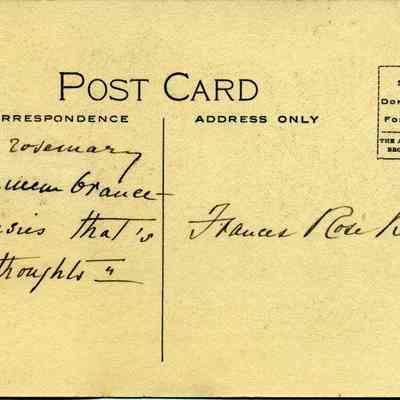 POST CARD
RRESPONDENCE
ADDRESS ONLY
rosemary
membrance—
sies that's
thoughts"
Frances Rose
Do
Fo
THE A